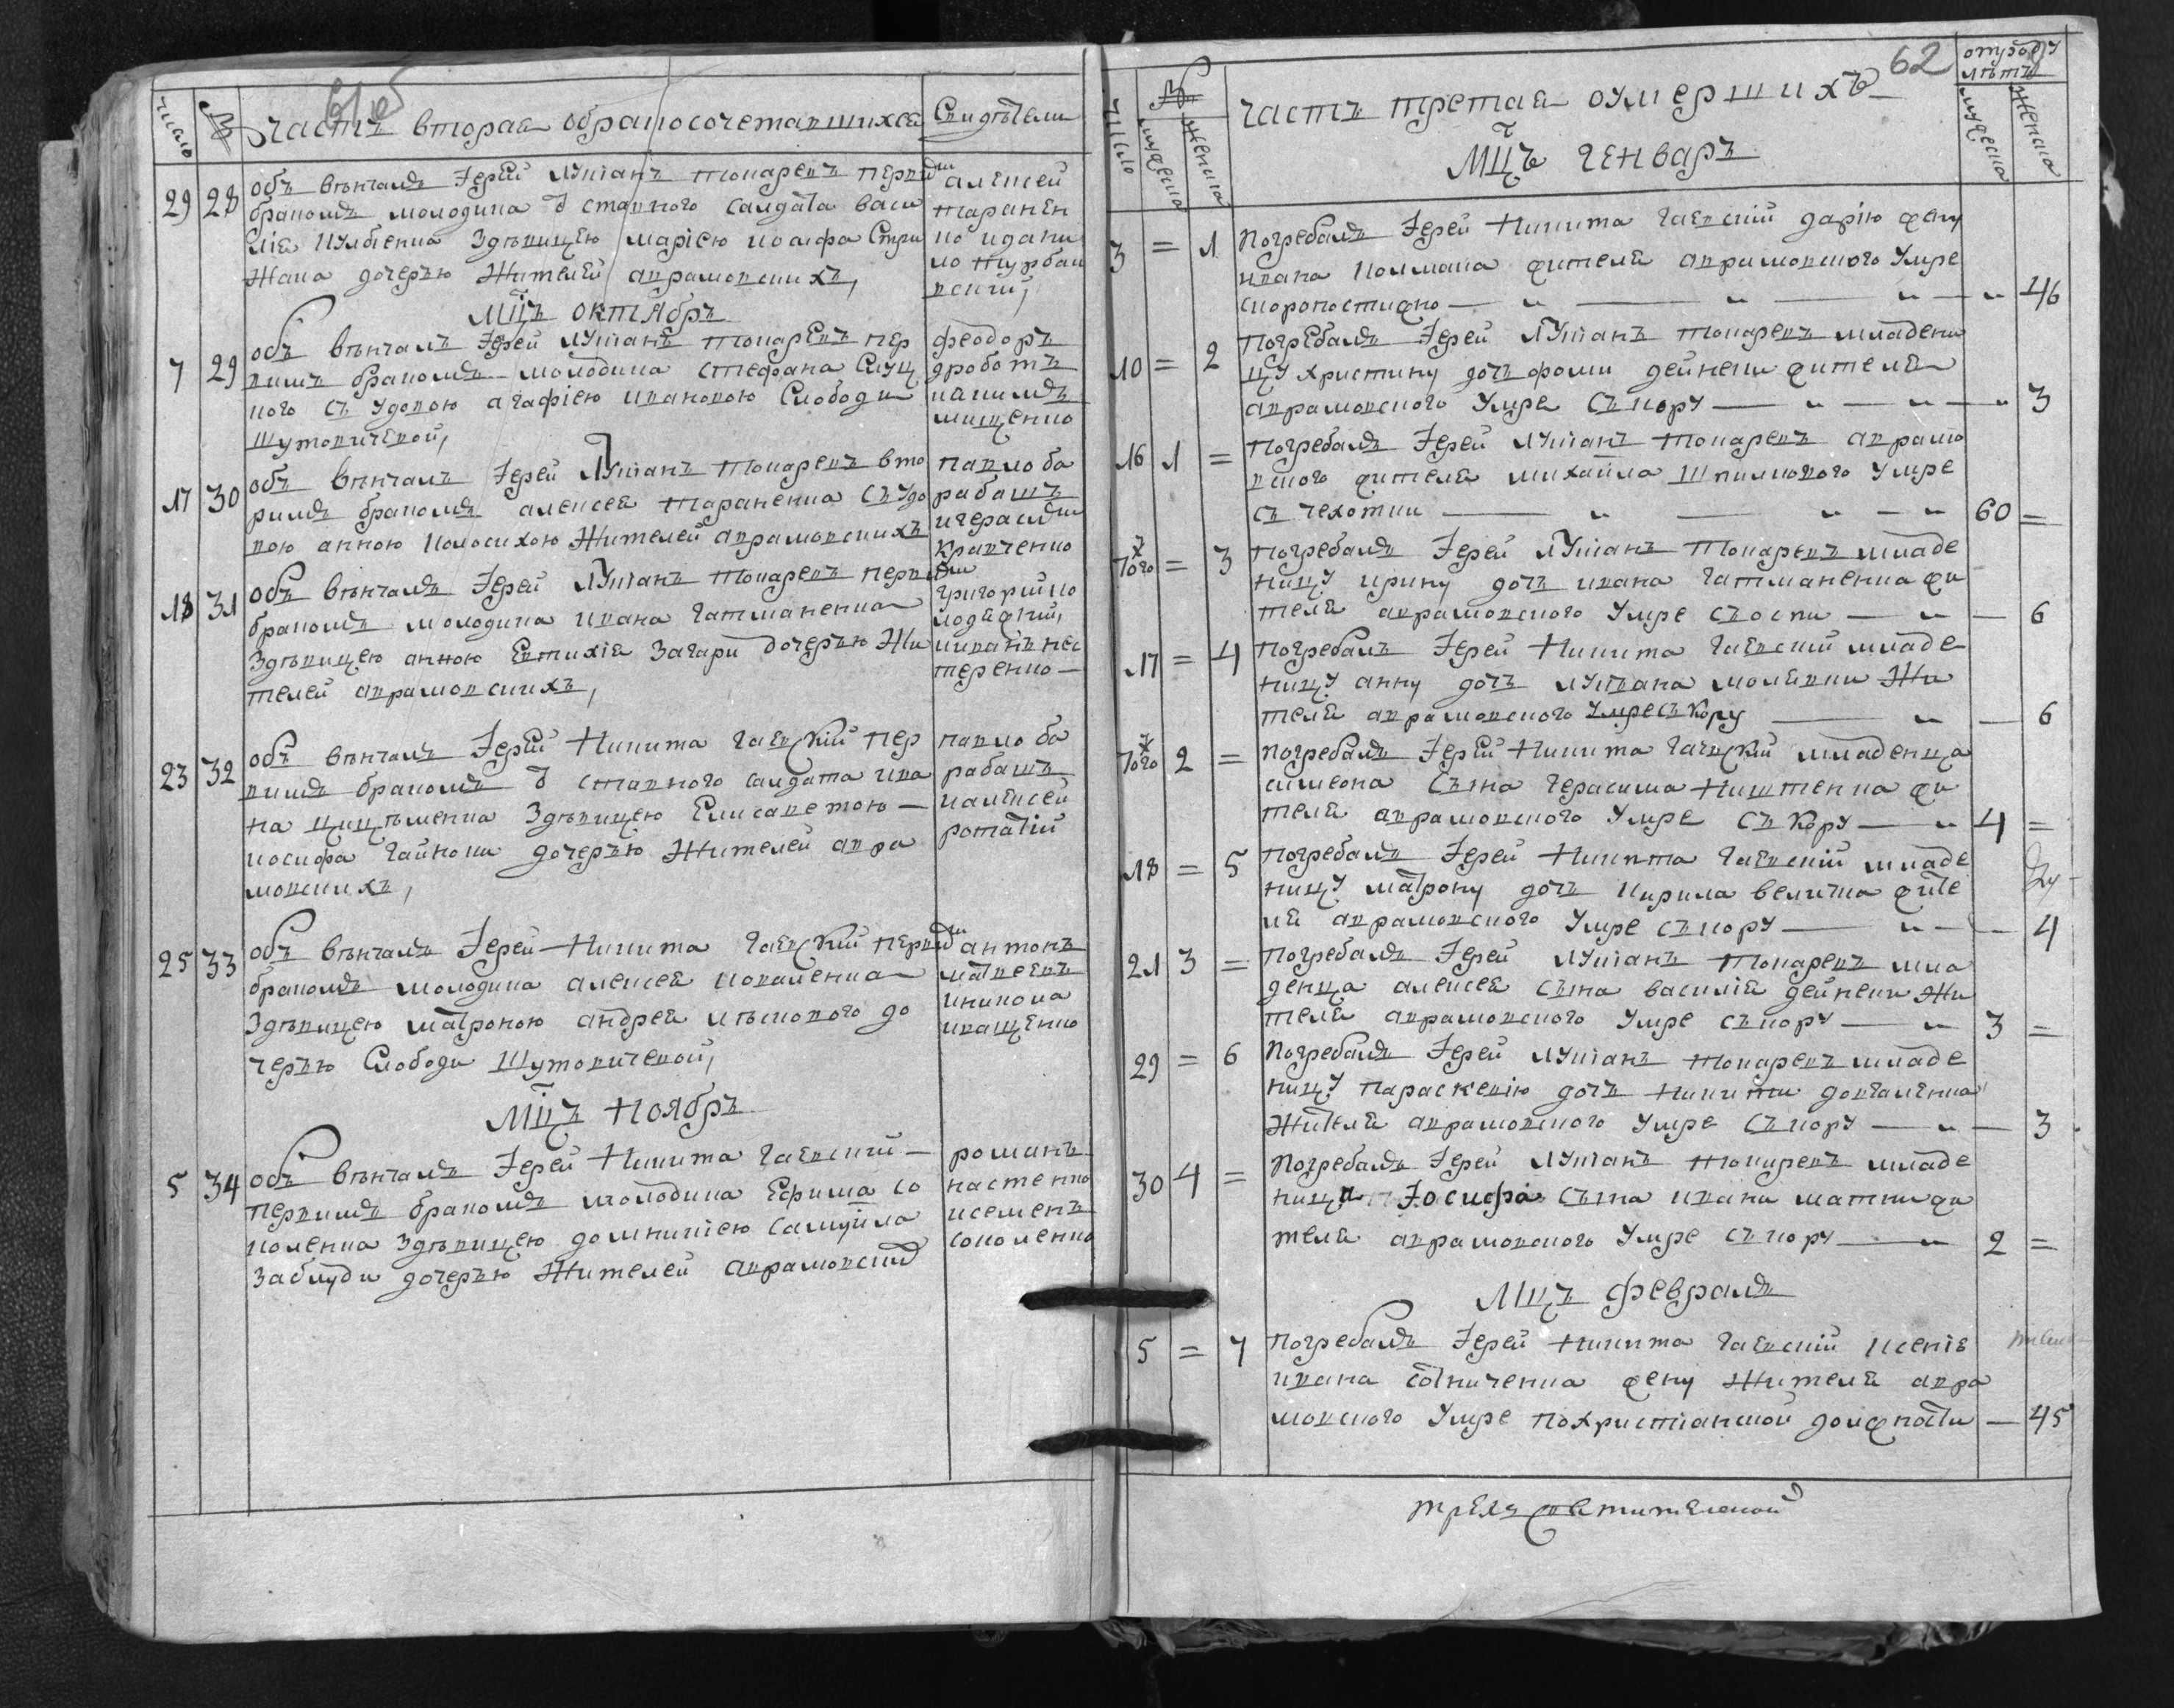 число № Часть вторая обракосочетавшихся Свидѣтели
29 28 объ вѣнчалъ Іерей Лукіанъ Токаревъ первим
бракомъ молодика ѿставного салдата васи
лія Кулбенка Здѣвицею маріею иоаифа Стри
жака дочерью Жителей аврамовскихъ,
алексей
таранен
ко идани
ло Курбац
вский,
Мцъ октябръ
7 29 объ вѣнчалъ Іерей Лукіанъ Токаревъ пер
вимъ бракомъ молодика стефана Слуц
кого съ удовою агафіею ивановою Слободи
шутовичевой,
феодоръ
дроботъ
иакимъ
мищенко
17 30 объ вѣнчалъ Іерей Лукіанъ Токаревъ вто
римъ бракомъ алексея тараненка съ удо
вою анною колосихою Жителей аврамовскихъ
павло ба
рабашъ
игерасим
кравченко
18 31 объ вѣнчалъ Іерей Лукіанъ Токаревъ первим
бракомъ молодика ивана гатманенка
Здѣвицею анною Евтихія Загари дочерью Жи
телей аврамовскихъ,
григорий ко
лодяжний,
ииванъ нес
теренко
23 32 объ вѣнчалъ Іерей Никита гаевский пер
вимъ бракомъ ѿставного салдата ива
на Здѣвицею Елисаветою
иосифа гайноки дочерью Жителей авра
мовскихъ,
павло ба
рабашъ
иалексей
ротатій
25 33 объ вѣнчалъ Іерей Никита гаевский первим
бракомъ молодика алексея коваленка
Здѣвицею матроною андрея лѣскового до
черью Слободи Шутовичевой,
антонъ
матвеевъ
иникола
иващенко
Мцъ Ноябръ
5 34 объ вѣнчалъ Іерей Никита гаевский
первимъ бракомъ молодика Ефима со
коленка Здѣвицею домникіею самуйла
Заблуди дочерью Жителей аврамовских
романъ
настенко
исеменъ
соколенко
62
число № мужеска женска
часть третая оумершихъ
отроду лѣтъ мужеска женска
Мцъ генваръ
3 = 1 Погребалъ Іерей Никита гаевский дарію жену
ивана Колмака жителя аврамовского умре
скоропостижно 46
10 = 2 Погребалъ Іерей Лукіанъ Токаревъ младени
цу христину дочъ фоми дейнеки жителя
аврамовского умре съкору 3
16 1 = Погребалъ Іерей Лукіанъ Токаревъ аврамо
вского жителя михайла Шпилкового умре
съ чехотки 60 =
Тогож = 3 Погребалъ Іерей Лукіанъ Токаревъ младе
ницу ирину дочъ ивана гатманенка жи
теля аврамовского умре съоспи 6
17 = 4 Погребалъ Іерей Никита гаевский младе
ницу анну дочъ лукіана молявки Жи
теля аврамовского умре съ кору 6
Тогож 2 = Погребалъ Іерей Никита гаевский младенца
симеона съна герасима Никитенка жи
теля аврамовского умре съ кору 4 =
18 = 5 Погребалъ Іерей Никита гаевский младе
ницу матрону дочъ кирила величка жите
ля аврамовского умре съкору 4
21 3 = Погребалъ Іерей Лукіанъ Токаревъ мла
денца алексея съна василія дейнеки Жи
теля аврамовского умре съкору 3 =
29 = 6 Погребалъ Іерей Лукіанъ Токаревъ младе
ницу параскевію дочъ Никити довгаленка
Жителя аврамовского умре съкору 3
30 4 = Погребалъ Іерей Лукіанъ Токаревъ младе
нца Іосифа съна ивана матки жи
теля аврамовского умре съкору 2 =
Мцъ Февраль
5 = 7 Погребалъ Іерей Никита гаевский ксенія
ивана сотниченка жену Жителя авра
мовского умре похристианской должности 45
трехъ святителской